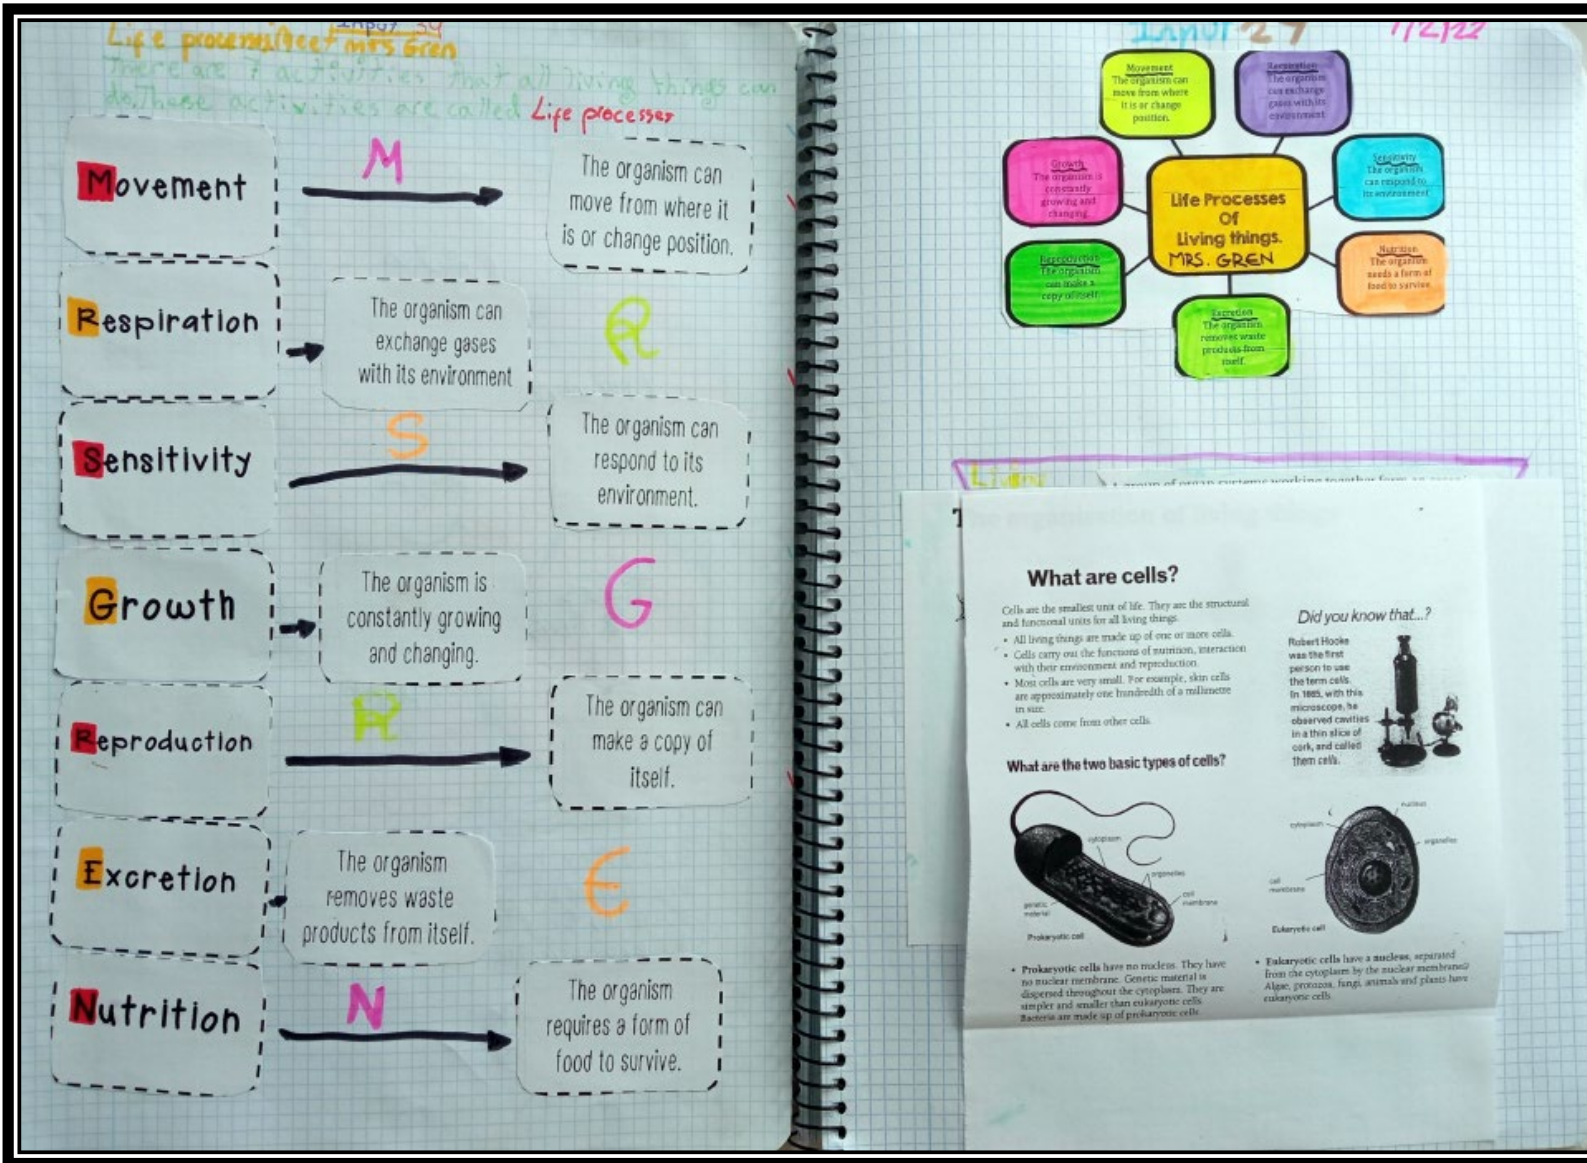 Input 34
Life processes/Meet mrs Gren
There are 7 activities that all living things can
do. These activities are called Life processes
Movement
M
The organism can
move from where it
is or change position.
Respiration
The organism can
exchange gases
with its environment
R
Sensitivity
S
The organism can
respond to its
environment.
Growth
The organism is
constantly growing
and changing.
G
Reproduction
R
The organism can
make a copy of
itself.
Excretion
The organism
removes waste
products from itself.
E
Nutrition
N
The organism
requires a form of
food to survive.
Input 27
1/2/22
Movement
The organism can
move from where
it is or change
position.
Respiration
The organism
can exchange
gases with its
environment
Growth
The organism is
constantly
growing and
changing.
Life Processes
Of
Living things.
MRS. GREN
Sensitivity
The organism
can respond to
its environment
Reproduction
The organism
can make a
copy of itself.
Nutrition
The organism
needs a form of
food to survive.
Excretion
The organism
removes waste
products from
itself.
Living
A group of organ systems working together form an
The organisation of living things
What are cells?
Cells are the smallest unit of life. They are the structural
and functional units for all living things.
• All living things are made up of one or more cells.
• Cells carry out the functions of nutrition, interaction
with their environment and reproduction.
• Most cells are very small. For example, skin cells
are approximately one hundredth of a millimetre
in size.
• All cells come from other cells.
Did you know that...?
Robert Hooke
was the first
person to use
the term cells.
In 1665, with this
microscope, he
observed cavities
in a thin slice of
cork, and called
them cells.
What are the two basic types of cells?
cytoplasm
organelles
cell
membrane
genetic
material
Prokaryotic cell
nucleus
cytoplasm
organelles
cell
membrane
Eukaryotic cell
• Prokaryotic cells have no nucleus. They have
no nuclear membrane. Genetic material is
dispersed throughout the cytoplasm. They are
simpler and smaller than eukaryotic cells.
Bacteria are made up of prokaryotic cells.
• Eukaryotic cells have a nucleus, separated
from the cytoplasm by the nuclear membrane.
Algae, protozoa, fungi, animals and plants have
eukaryotic cells.